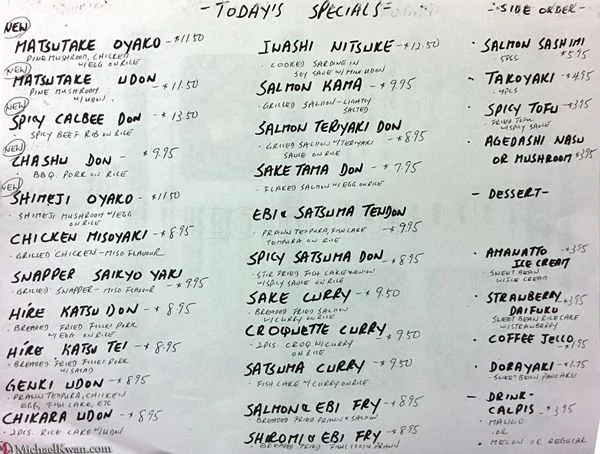 - TODAY'S SPECIALS -
NEW
MATSUTAKE OYAKO - $11.50
PINE MUSHROOM, CHICKEN
W/EGG ON RICE
NEW
MATSUTAKE UDON - $11.50
PINE MUSHROOM
W/UDON
NEW
SPICY CALBEE DON - $13.50
SPICY BEEF RIB ON RICE
NEW
CHASHU DON - $9.95
· BBQ. PORK ON RICE
NEW
SHIMEJI OYAKO - $11.50
· SHIMEJI MUSHROOM W/EGG
ON RICE
CHICKEN MISOYAKI - $8.95
· GRILLED CHICKEN - MISO FLAVOUR
SNAPPER SAIKYO YAKI - $9.95
· GRILLED SNAPPER - MISO FLAVOUR
HIRE KATSU DON - $8.95
· BREADED FRIED FILLET PORK
W/EGG ON RICE
HIRE KATSU TEI - $8.95
· BREADED FRIED FILLET PORK
W/SALAD
GENKI UDON - $8.95
· PRAWN TEMPURA, CHICKEN
EGG, FISH CAKE, ETC
CHIKARA UDON - $8.95
· 2PCS. RICE CAKE W/UDON
IWASHI NITSUKE - $12.50
· COOKED SARDINE IN
SOY SAUCE W/MINI UDON
SALMON KAMA - $9.95
· GRILLED SALMON - LIGHTLY
SALTED
SALMON TERIYAKI DON - $8.95
· GRILLED SALMON W/TERIYAKI
SAUCE ON RICE
SAKE TAMA DON - $7.95
· FLAKED SALMON W/EGG ON RICE
EBI & SATSUMA TENDON - $9.95
· PRAWN TEMPURA, FISH CAKE
TEMPURA ON RICE
SPICY SATSUMA DON - $8.95
· STIR FRIED FISH CAKE W/ONION
W/SPICY SAUCE ON RICE
SAKE CURRY - $9.50
· BREADED FRIED SALMON
W/CURRY ON RICE
CROQUETTE CURRY - $9.50
· 2PCS. CROQ W/CURRY
ON RICE
SATSUMA CURRY - $9.50
· FISH CAKE W/CURRY ON RICE
SALMON & EBI FRY - $8.95
· BREADED FRIED PRAWN & SALMON
SHIROMI & EBI FRY - $8.95
· BREADED FRIED FISH (COD) & PRAWN
- SIDE ORDER -
· SALMON SASHIMI - $5.95
5PCS
· TAKOYAKI - $4.95
4PCS
· SPICY TOFU - $3.95
FRIED TOFU
W/SPICY SAUCE
· AGEDASHI NASU
OR MUSHROOM $3.95
- DESSERT -
· AMANATTO - $3.95
ICE CREAM
SWEET BEAN
W/ICE CREAM
· STRAWBERRY - $3.95
DAIFUKU
SWEET BEAN RICE CAKE
W/STRAWBERRY
· COFFEE JELLO - $1.95
· DORAYAKI - $1.75
SWEET BEAN PANCAKE
- DRINK -
CALPIS - $3.95
· MANGO
OR
· MELON OR REGULAR
MichaelKwan.com